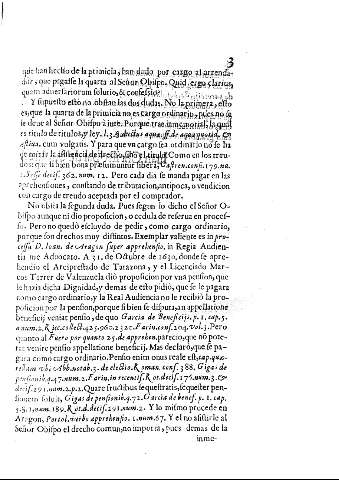 3
que han hecho de la primicia, han dado por cargo al arrenda-
dor, que pagasse la quarta al Señor Obispo. Quid ergo clarius,
quam adversariorum solutio, & confessio?
Y supuesto esto no obstan las dos dudas. No la primera, esto
es, que la quarta de la primicia no es cargo ordinario, pues no se
le deue al Señor Obispo à iure. Porque trae immemorial, la qual
es titulo de titulos, y ley. l. 3. ductus aquæ, ff. de aqua quotid. &
æstiua, cum vulgatis. Y para que vn cargo sea ordinario no se ha
de mirar la de derecho, sino el titulo. Como en los treu-
dos que si bien bona præsumuntur libera, Castren. cons. 179. nu.
1. Sesse decis. 362. num. 12. Pero cada dia se manda pagar en las
aprehensiones, constando de tributacion, antipoca, o vendicion
con cargo de treudo aceptada por el comprador.
No obsta la segunda duda. Pues segun lo dicho el Señor O-
bispo aunque ni dio proposicion, o cedula de referua en proces-
so. Pero no quedò excluydo de pedir, como cargo ordinario,
porque son drechos muy distintos. Exemplar valiente es in pro-
cessu D. Ioan. de Aragon super apprehensio, in Regia Audien-
tia me Aduocato. A 31. de Octubre de 1630. donde se apre-
hendio el Arciprestado de Tarazona, y el Licenciado Mar-
cos Terrer de Valenzuela diò proposicion por vna pension, que
le hazia dicha Dignidad, y demas de esto pidiò, que se le pagara
como cargo ordinario, y la Real Audiencia no le recibiò la pro-
posicion por la pension, porque si bien se disputa, an appellatione
beneficij veniat pensio, de quo Garcia de Beneficijs, p. 1. cap. 5.
num. 2. Ricc. collect. 425. 960. 2321. Farin. cons. 204. vol. 3. Pero
quanto al Fuero por quanto 25. de apprehen. parecio, que no pote-
rat venire pensio appellatione beneficij. Mas declarò, que se pa-
gara como cargo ordinario. Pensio enim onus reale est, cap. quæ-
rellam vbi Abb. notab. 3. de electio. Roman. cons. 388. Gigas de
pensionib. q. 47. num. 2. Farin. in recentis. Rot. decis. 176. num. 3. &
decis. 291. num. 2. p. 2. Quare fructibus sequestratis, sequester pen-
sionem soluit, Gigas de pensionib. q. 72. Garcia de benef. p. 1. cap.
5. §. 1. num. 189. Rot. d. decis. 291. num. 2. Y lo mismo procede en
Aragon, Portol. verbo apprehensio 2. num. 67. Y el no assistirle al
Señor Obispo el derecho comun, no importa, pues demas de la
inme-